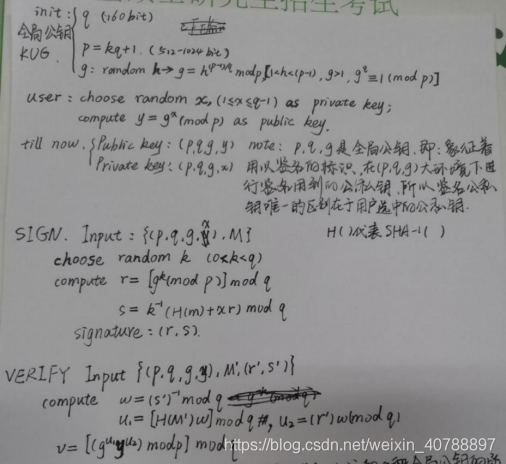 全国硕士研究生招生考试
init: { q (160 bit)
全局公钥 KUG
p = kq+1. (512-1024 bit)
g: random h → g = h^(p-1)/q mod p [1<h<(p-1), g>1, g^q ≡ 1 (mod p)]
user: choose random x, (1≤x≤q-1) as private key;
compute y = g^x (mod p) as public key.
till now. { Public key: (p,q,g,y)
Private key: (p,q,g,x)
note: p,q,g是全局公钥,即:象征着
用以签名的标识,在(p,q,g)大环境下进
行签名用到的公私钥,所以签名公私
钥唯一的区别在于用户选中的公私钥.
SIGN. Input: {(p,q,g,x), M}
H()代表SHA-1()
choose random k (0<k<q)
compute r = [g^k (mod p)] mod q
s = k^-1 (H(m)+xr) mod q
signature: (r,s).
VERIFY Input {(p,q,g,y), M', (r',s')}
compute w = (s')^-1 mod q
u1 = [H(M')w] mod q, u2 = (r')w(mod q)
v = [(g^u1 y^u2) mod p] mod q
https://blog.csdn.net/weixin_40788897